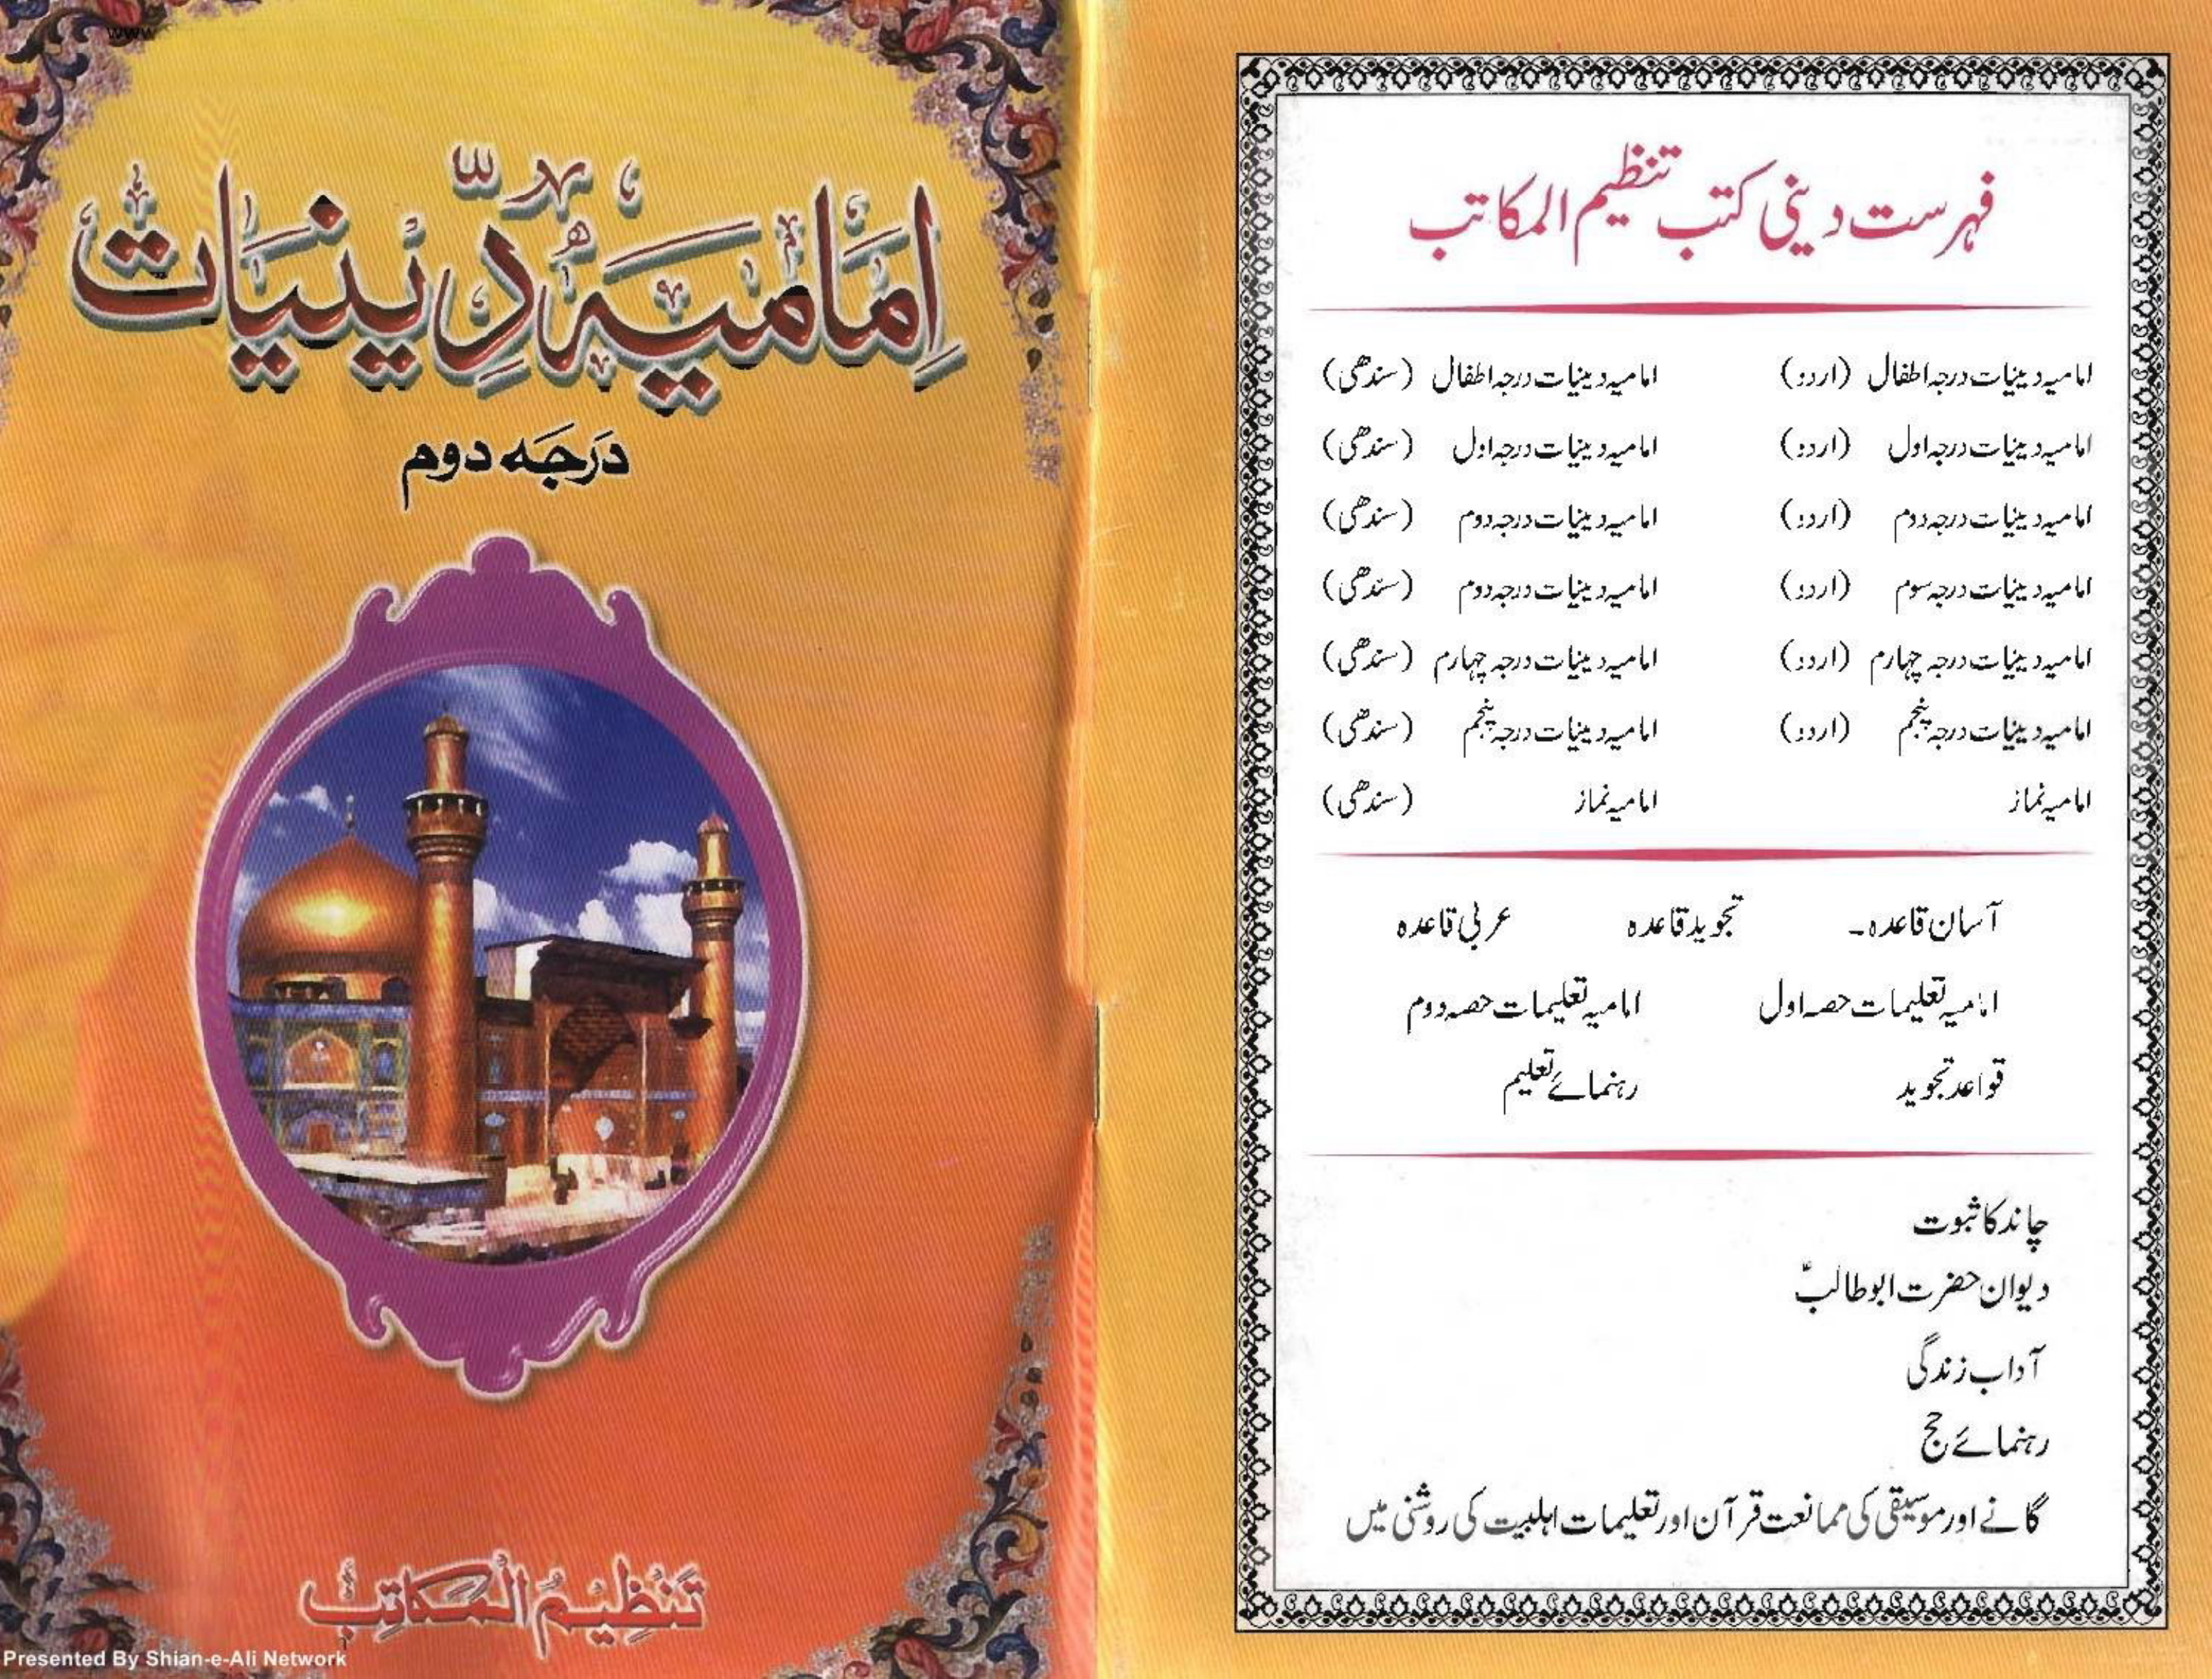 www
امامیہ دینیات
درجہ دوم
تنظیم المکاتب
Presented By Shian-e-Ali Network
فہرست دینی کتب تنظیم المکاتب
امامیہ دینیات درجہ اطفال (اردو) امامیہ دینیات درجہ اطفال (سندھی)
امامیہ دینیات درجہ اول (اردو) امامیہ دینیات درجہ اول (سندھی)
امامیہ دینیات درجہ دوم (اردو) امامیہ دینیات درجہ دوم (سندھی)
امامیہ دینیات درجہ سوم (اردو) امامیہ دینیات درجہ دوم (سندھی)
امامیہ دینیات درجہ چہارم (اردو) امامیہ دینیات درجہ چہارم (سندھی)
امامیہ دینیات درجہ پنجم (اردو) امامیہ دینیات درجہ پنجم (سندھی)
امامیہ نماز امامیہ نماز (سندھی)
آسان قاعدہ۔ تجوید قاعدہ عربی قاعدہ
امامیہ تعلیمات حصہ اول امامیہ تعلیمات حصہ دوم
قواعد تجوید رہنمائے تعلیم
چاند کا ثبوت
دیوان حضرت ابوطالبؑ
آداب زندگی
رہنمائے حج
گانے اور موسیقی کی ممانعت قرآن اور تعلیمات اہلبیت کی روشنی میں